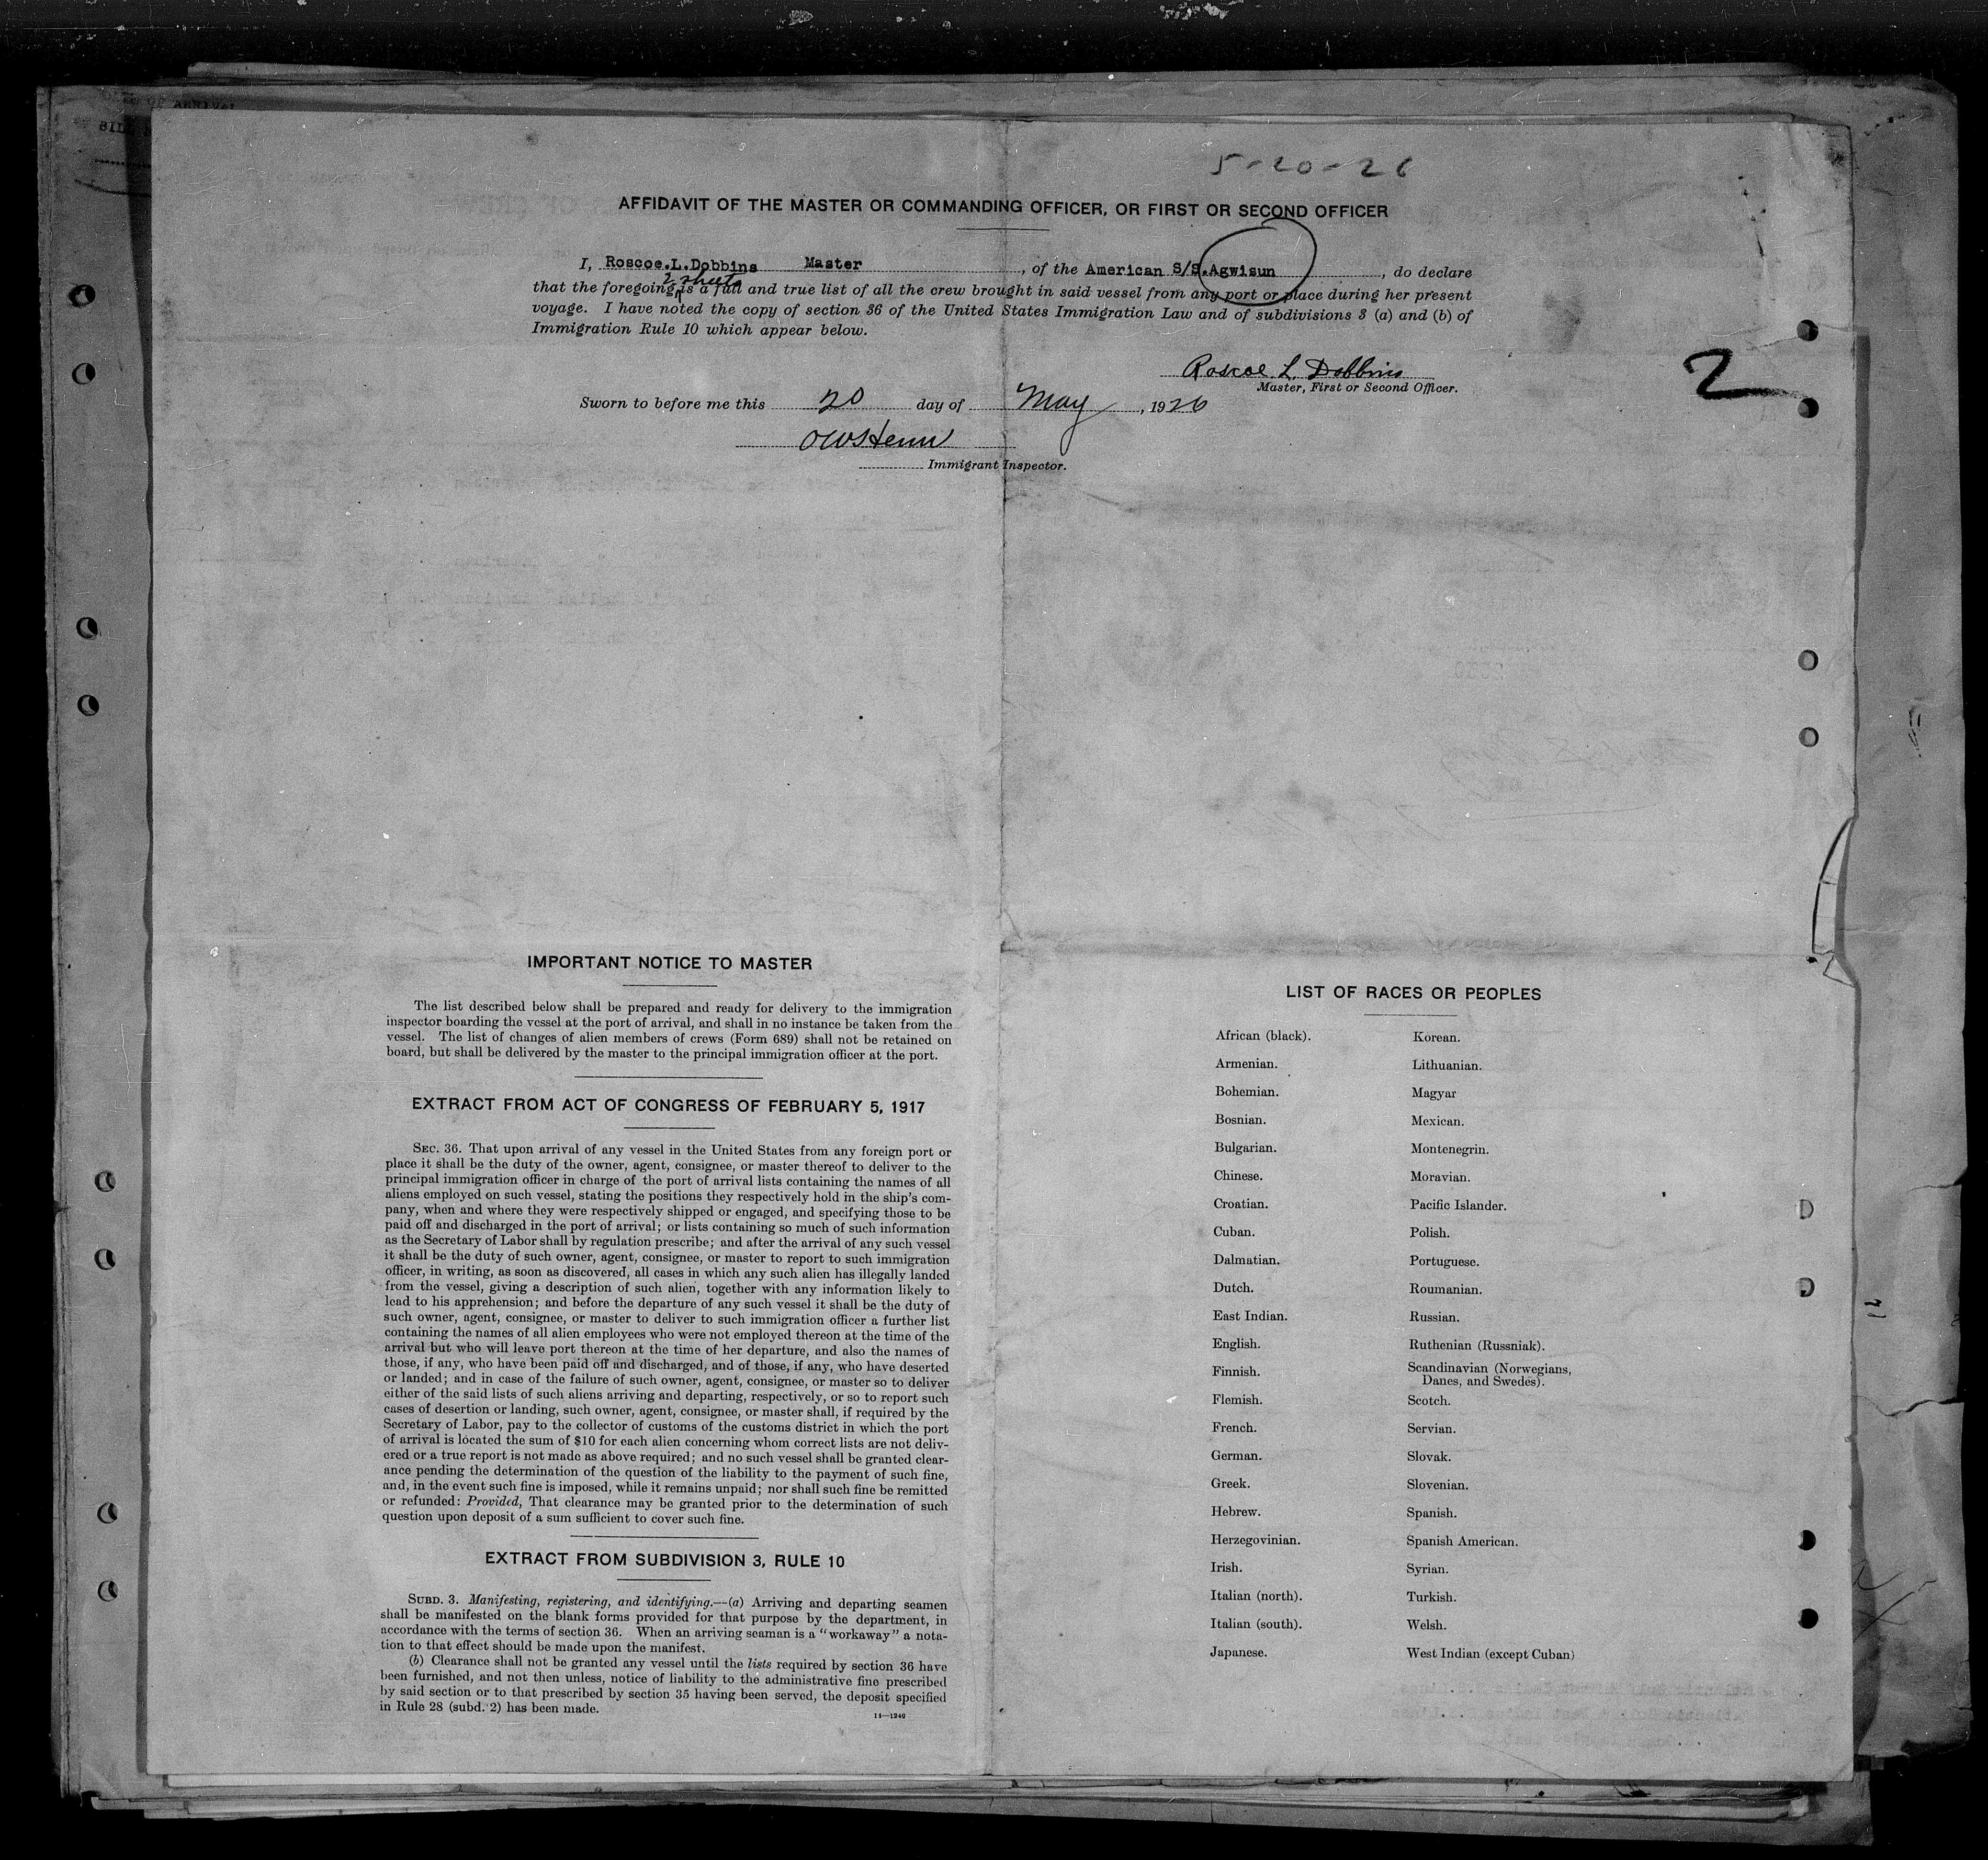 5-20-26
AFFIDAVIT OF THE MASTER OR COMMANDING OFFICER, OR FIRST OR SECOND OFFICER
I, Roscoe.L.Dobbins Master, of the American S/S.Agwisun, do declare
2 sheets
that the foregoing is a full and true list of all the crew brought in said vessel from any port or place during her present
voyage. I have noted the copy of section 36 of the United States Immigration Law and of subdivisions 3 (a) and (b) of
Immigration Rule 10 which appear below.
Roscoe L. Dobbins
Master, First or Second Officer.
2
Sworn to before me this 20 day of May, 1926
Immigrant Inspector.
IMPORTANT NOTICE TO MASTER
The list described below shall be prepared and ready for delivery to the immigration
inspector boarding the vessel at the port of arrival, and shall in no instance be taken from the
vessel. The list of changes of alien members of crews (Form 689) shall not be retained on
board, but shall be delivered by the master to the principal immigration officer at the port.
EXTRACT FROM ACT OF CONGRESS OF FEBRUARY 5, 1917
SEC. 36. That upon arrival of any vessel in the United States from any foreign port or
place it shall be the duty of the owner, agent, consignee, or master thereof to deliver to the
principal immigration officer in charge of the port of arrival lists containing the names of all
aliens employed on such vessel, stating the positions they respectively hold in the ship's com-
pany, when and where they were respectively shipped or engaged, and specifying those to be
paid off and discharged in the port of arrival; or lists containing so much of such information
as the Secretary of Labor shall by regulation prescribe; and after the arrival of any such vessel
it shall be the duty of such owner, agent, consignee, or master to report to such immigration
officer, in writing, as soon as discovered, all cases in which any such alien has illegally landed
from the vessel, giving a description of such alien, together with any information likely to
lead to his apprehension; and before the departure of any such vessel it shall be the duty of
such owner, agent, consignee, or master to deliver to such immigration officer a further list
containing the names of all alien employees who were not employed thereon at the time of the
arrival but who will leave port thereon at the time of her departure, and also the names of
those, if any, who have been paid off and discharged, and of those, if any, who have deserted
or landed; and in case of the failure of such owner, agent, consignee, or master so to deliver
either of the said lists of such aliens arriving and departing, respectively, or so to report such
cases of desertion or landing, such owner, agent, consignee, or master shall, if required by the
Secretary of Labor, pay to the collector of customs of the customs district in which the port
of arrival is located the sum of $10 for each alien concerning whom correct lists are not deliv-
ered or a true report is not made as above required; and no such vessel shall be granted clear-
ance pending the determination of the question of the liability to the payment of such fine,
and, in the event such fine is imposed, while it remains unpaid; nor shall such fine be remitted
or refunded: Provided, That clearance may be granted prior to the determination of such
question upon deposit of a sum sufficient to cover such fine.
EXTRACT FROM SUBDIVISION 3, RULE 10
SUBD. 3. Manifesting, registering, and identifying.—(a) Arriving and departing seamen
shall be manifested on the blank forms provided for that purpose by the department, in
accordance with the terms of section 36. When an arriving seaman is a "workaway" a nota-
tion to that effect should be made upon the manifest.
(b) Clearance shall not be granted any vessel until the lists required by section 36 have
been furnished, and not then unless, notice of liability to the administrative fine prescribed
by said section or to that prescribed by section 35 having been served, the deposit specified
in Rule 28 (subd. 2) has been made.
11—1240
LIST OF RACES OR PEOPLES
African (black).
Armenian.
Bohemian.
Bosnian.
Bulgarian.
Chinese.
Croatian.
Cuban.
Dalmatian.
Dutch.
East Indian.
English.
Finnish.
Flemish.
French.
German.
Greek.
Hebrew.
Herzegovinian.
Irish.
Italian (north).
Italian (south).
Japanese.
Korean.
Lithuanian.
Magyar
Mexican.
Montenegrin.
Moravian.
Pacific Islander.
Polish.
Portuguese.
Roumanian.
Russian.
Ruthenian (Russniak).
Scandinavian (Norwegians,
Danes, and Swedes).
Scotch.
Servian.
Slovak.
Slovenian.
Spanish.
Spanish American.
Syrian.
Turkish.
Welsh.
West Indian (except Cuban)